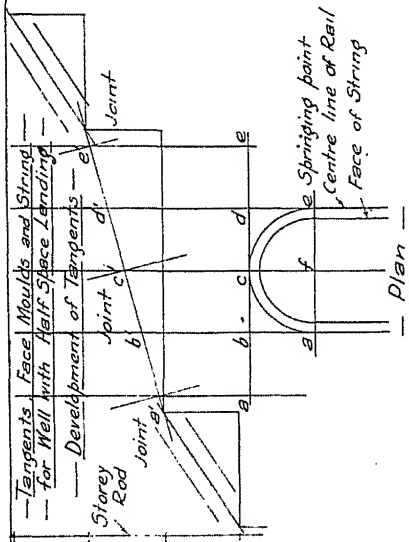 — Tangents, Face Moulds and String —
— for Well with Half Space Landing —
— Development of Tangents —
Storey
Rod
Joint
a'
b'
Joint
c'
d'
e'
Joint
a
b
c
d
e
a
f
e
Springing point
Centre line of Rail
Face of String
— Plan —